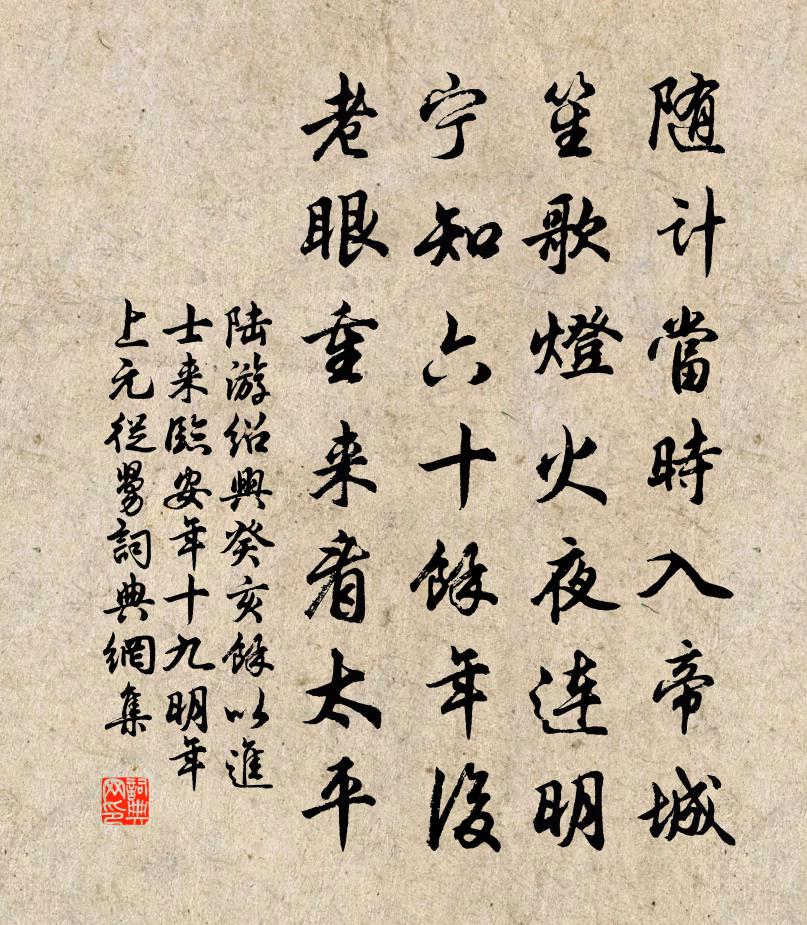 随计當時入帝城
笙歌燈火夜连明
宁知六十餘年後
老眼重来看太平
陆游绍興癸亥餘以進
士来臨安年十九明年
上元從舅詞典網集
詞典
网印